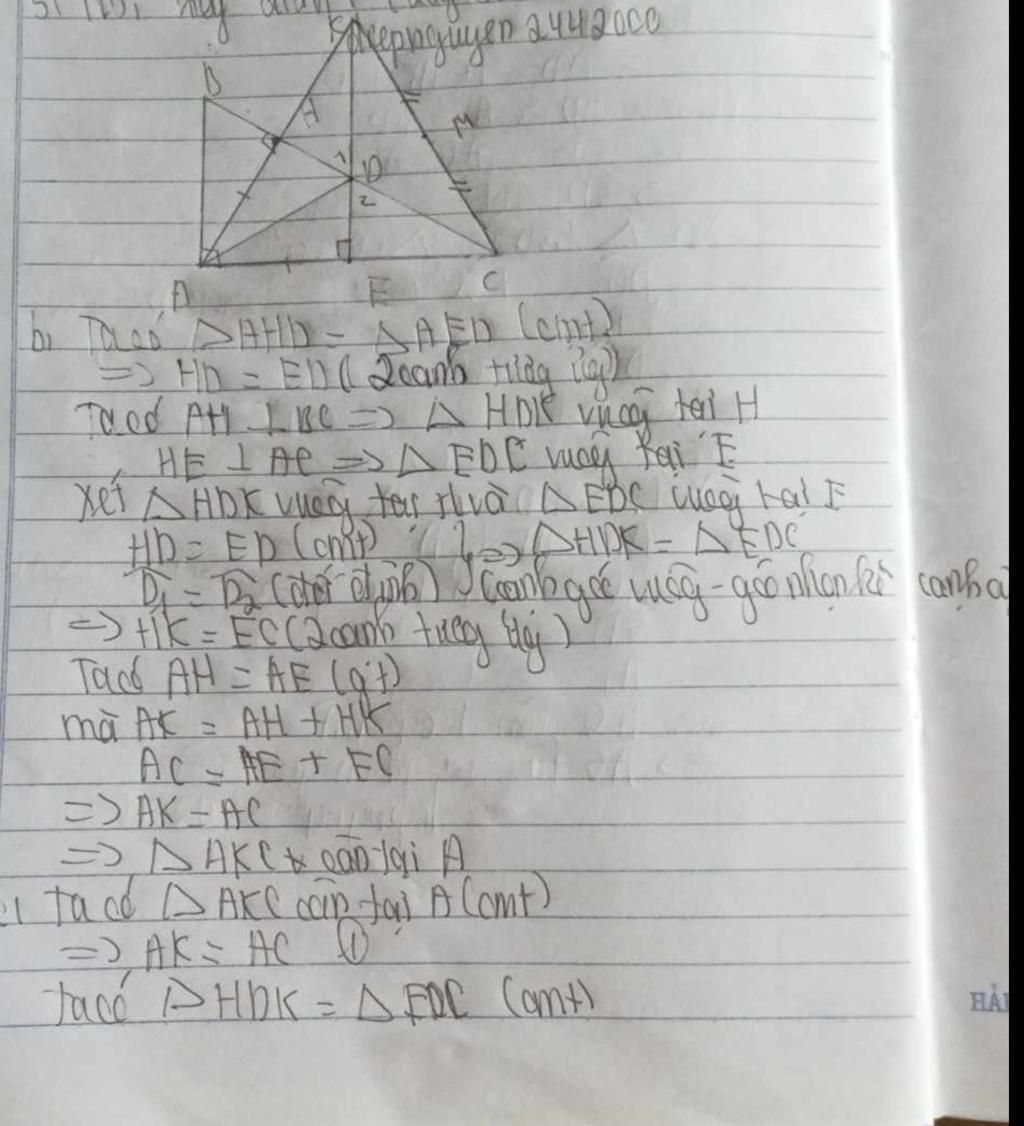 Kẹepnguyen2442000
B
H
M
1
D
2
A
E
C
b, Ta có △AHD = △AED (cmt)
=> HD = ED (2 cạnh tương ứg)
Ta có AH ⊥ BC => △ HDK vuôg tại H
HE ⊥ AC => △ EDC vuôg tại E
Xét △HDK vuôg tại H và △EDC vuôg tại E
HD = ED (cmt) } => △HDK = △EDC
D1 = D2 (đối đỉnh) (cạnh góc vuôg - góc nhọn kề cạnh
=> HK = EC (2 cạnh tươg ứg)
Ta có AH = AE (gt)
mà AK = AH + HK
AC = AE + EC
=> AK = AC
=> △ AKC cân tại A
Ta có △ AKC cân tại A (cmt)
=> AK = AC ①
Ta có △ HDK = △ EDC (cmt)
HẢI